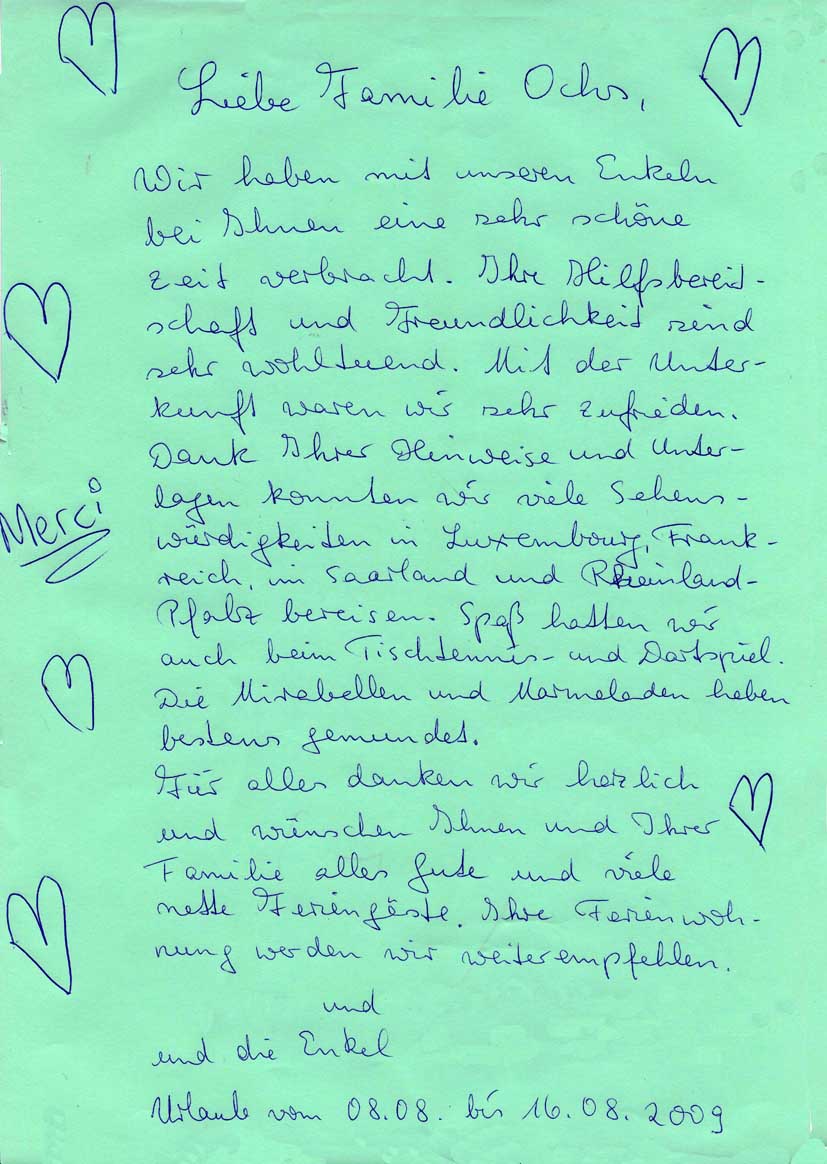 Liebe Familie Ochs,
Wir haben mit unseren Enkeln
bei Ihnen eine sehr schöne
Zeit verbracht. Ihre Hilfsbereit-
schaft und Freundlichkeit sind
sehr wohltuend. Mit der Unter-
kunft waren wir sehr zufrieden.
Dank Ihrer Hinweise und Unter-
lagen konnten wir viele Sehens-
würdigkeiten in Luxembourg, Frank-
reich, im Saarland und Rheinland-
Pfalz bereisen. Spaß hatten wir
auch beim Tischtennis- und Dartspiel.
Die Mirabellen und Marmeladen haben
bestens gemundet.
Für alles danken wir herzlich
und wünschen Ihnen und Ihrer
Familie alles Gute und viele
nette Feriengäste. Ihre Ferienwoh-
nung werden wir weiterempfehlen.
und
und die Enkel
Urlaub vom 08.08. bis 16.08.2009
Merci